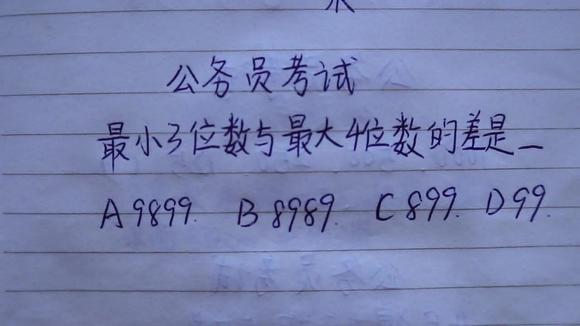 公务员考试
最小3位数与最大4位数的差是_
A 9899. B 8989. C 899. D 99.